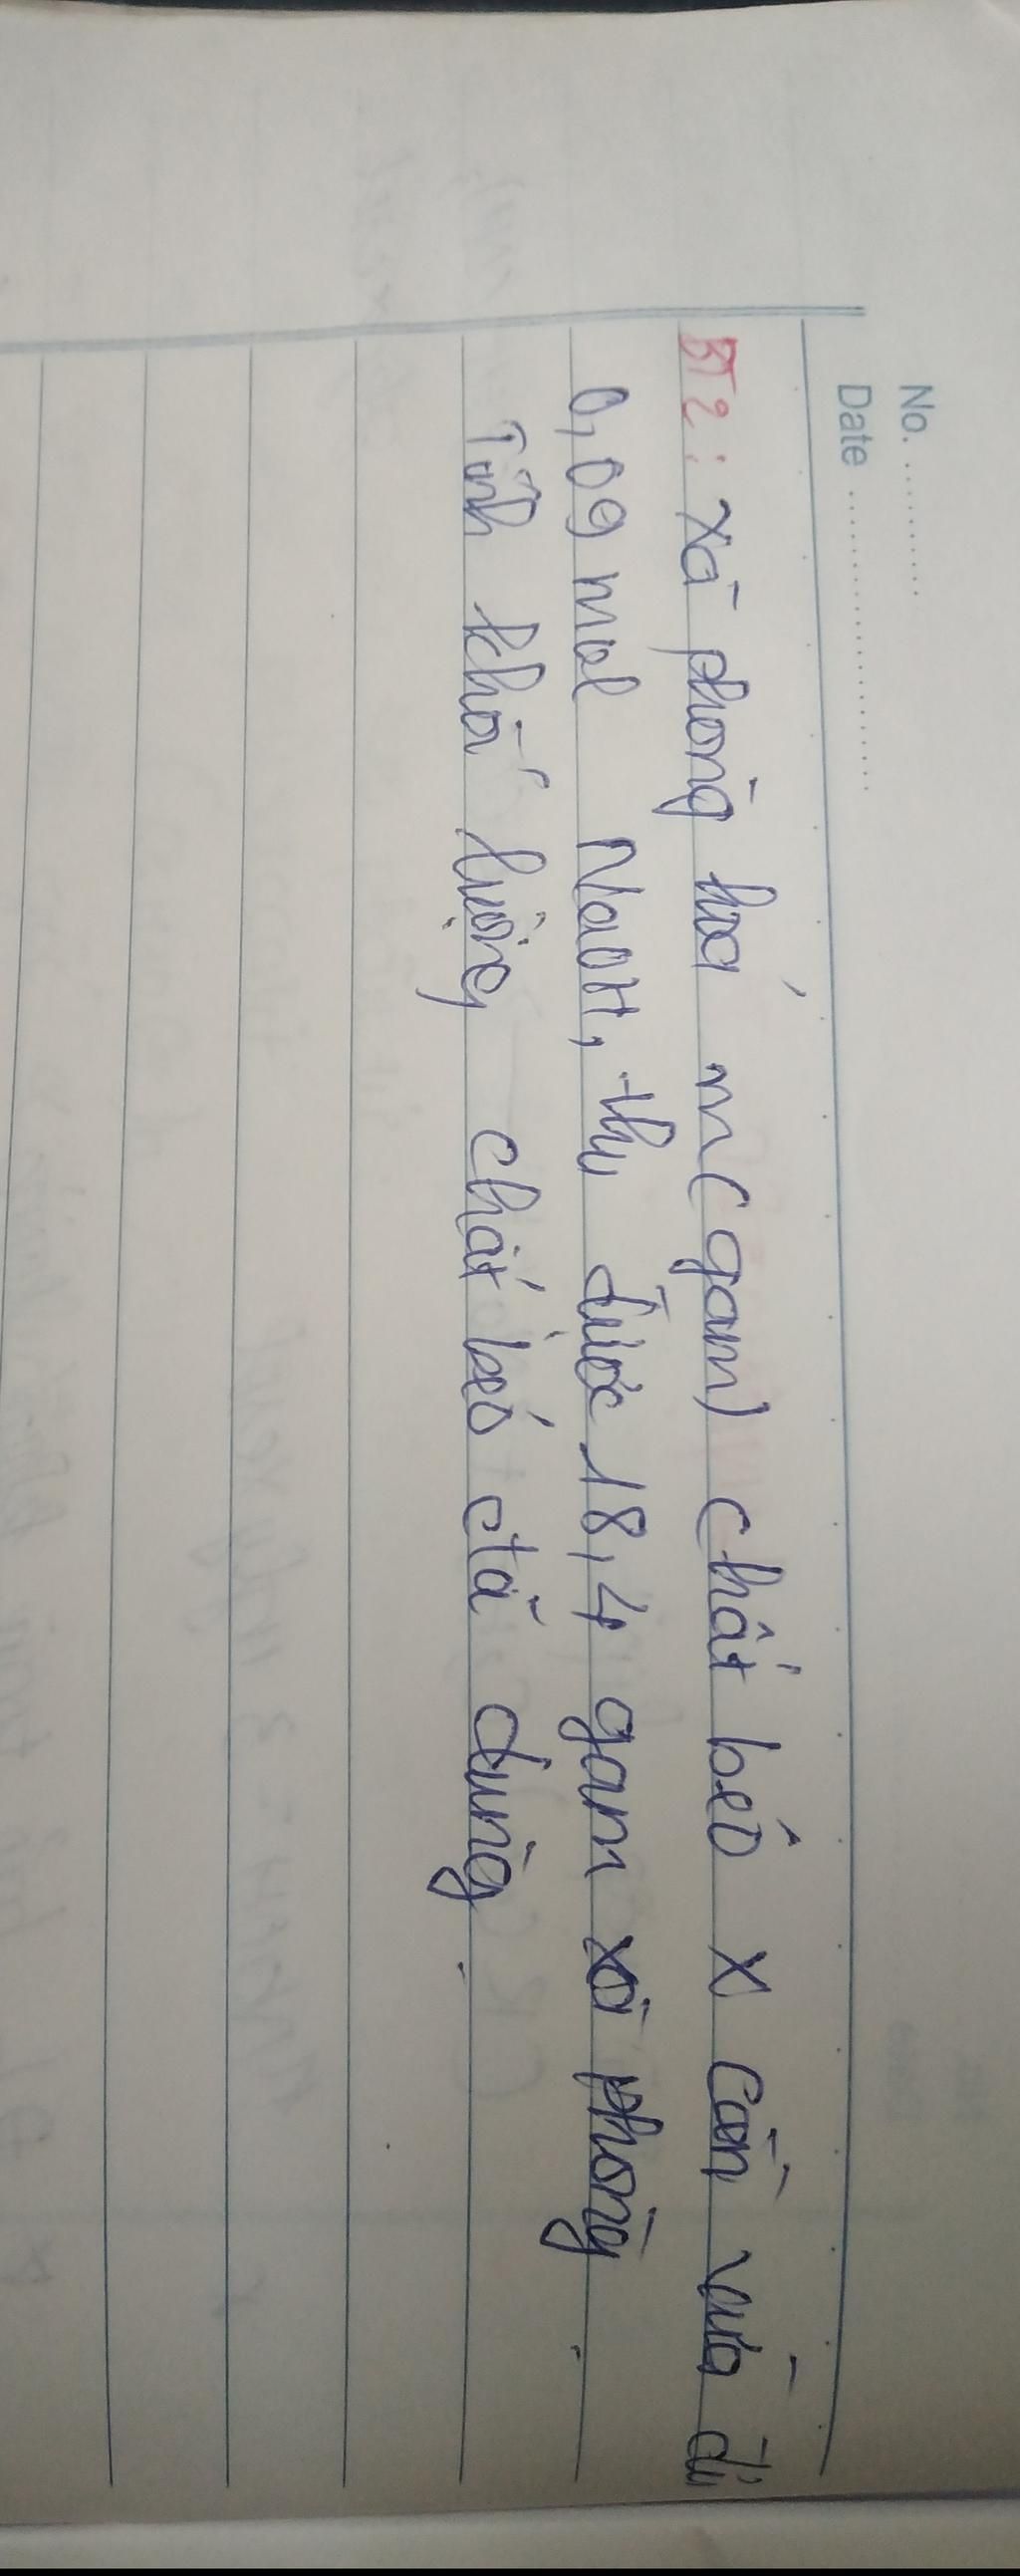 No. ............
Date ........................
BT2: xà phòng hoá m (gam) chất béo x cần vừa đủ
0,09 mol NaOH, thu được 18,4 gam xà phòng.
Tính khối lượng chất béo đã dùng.